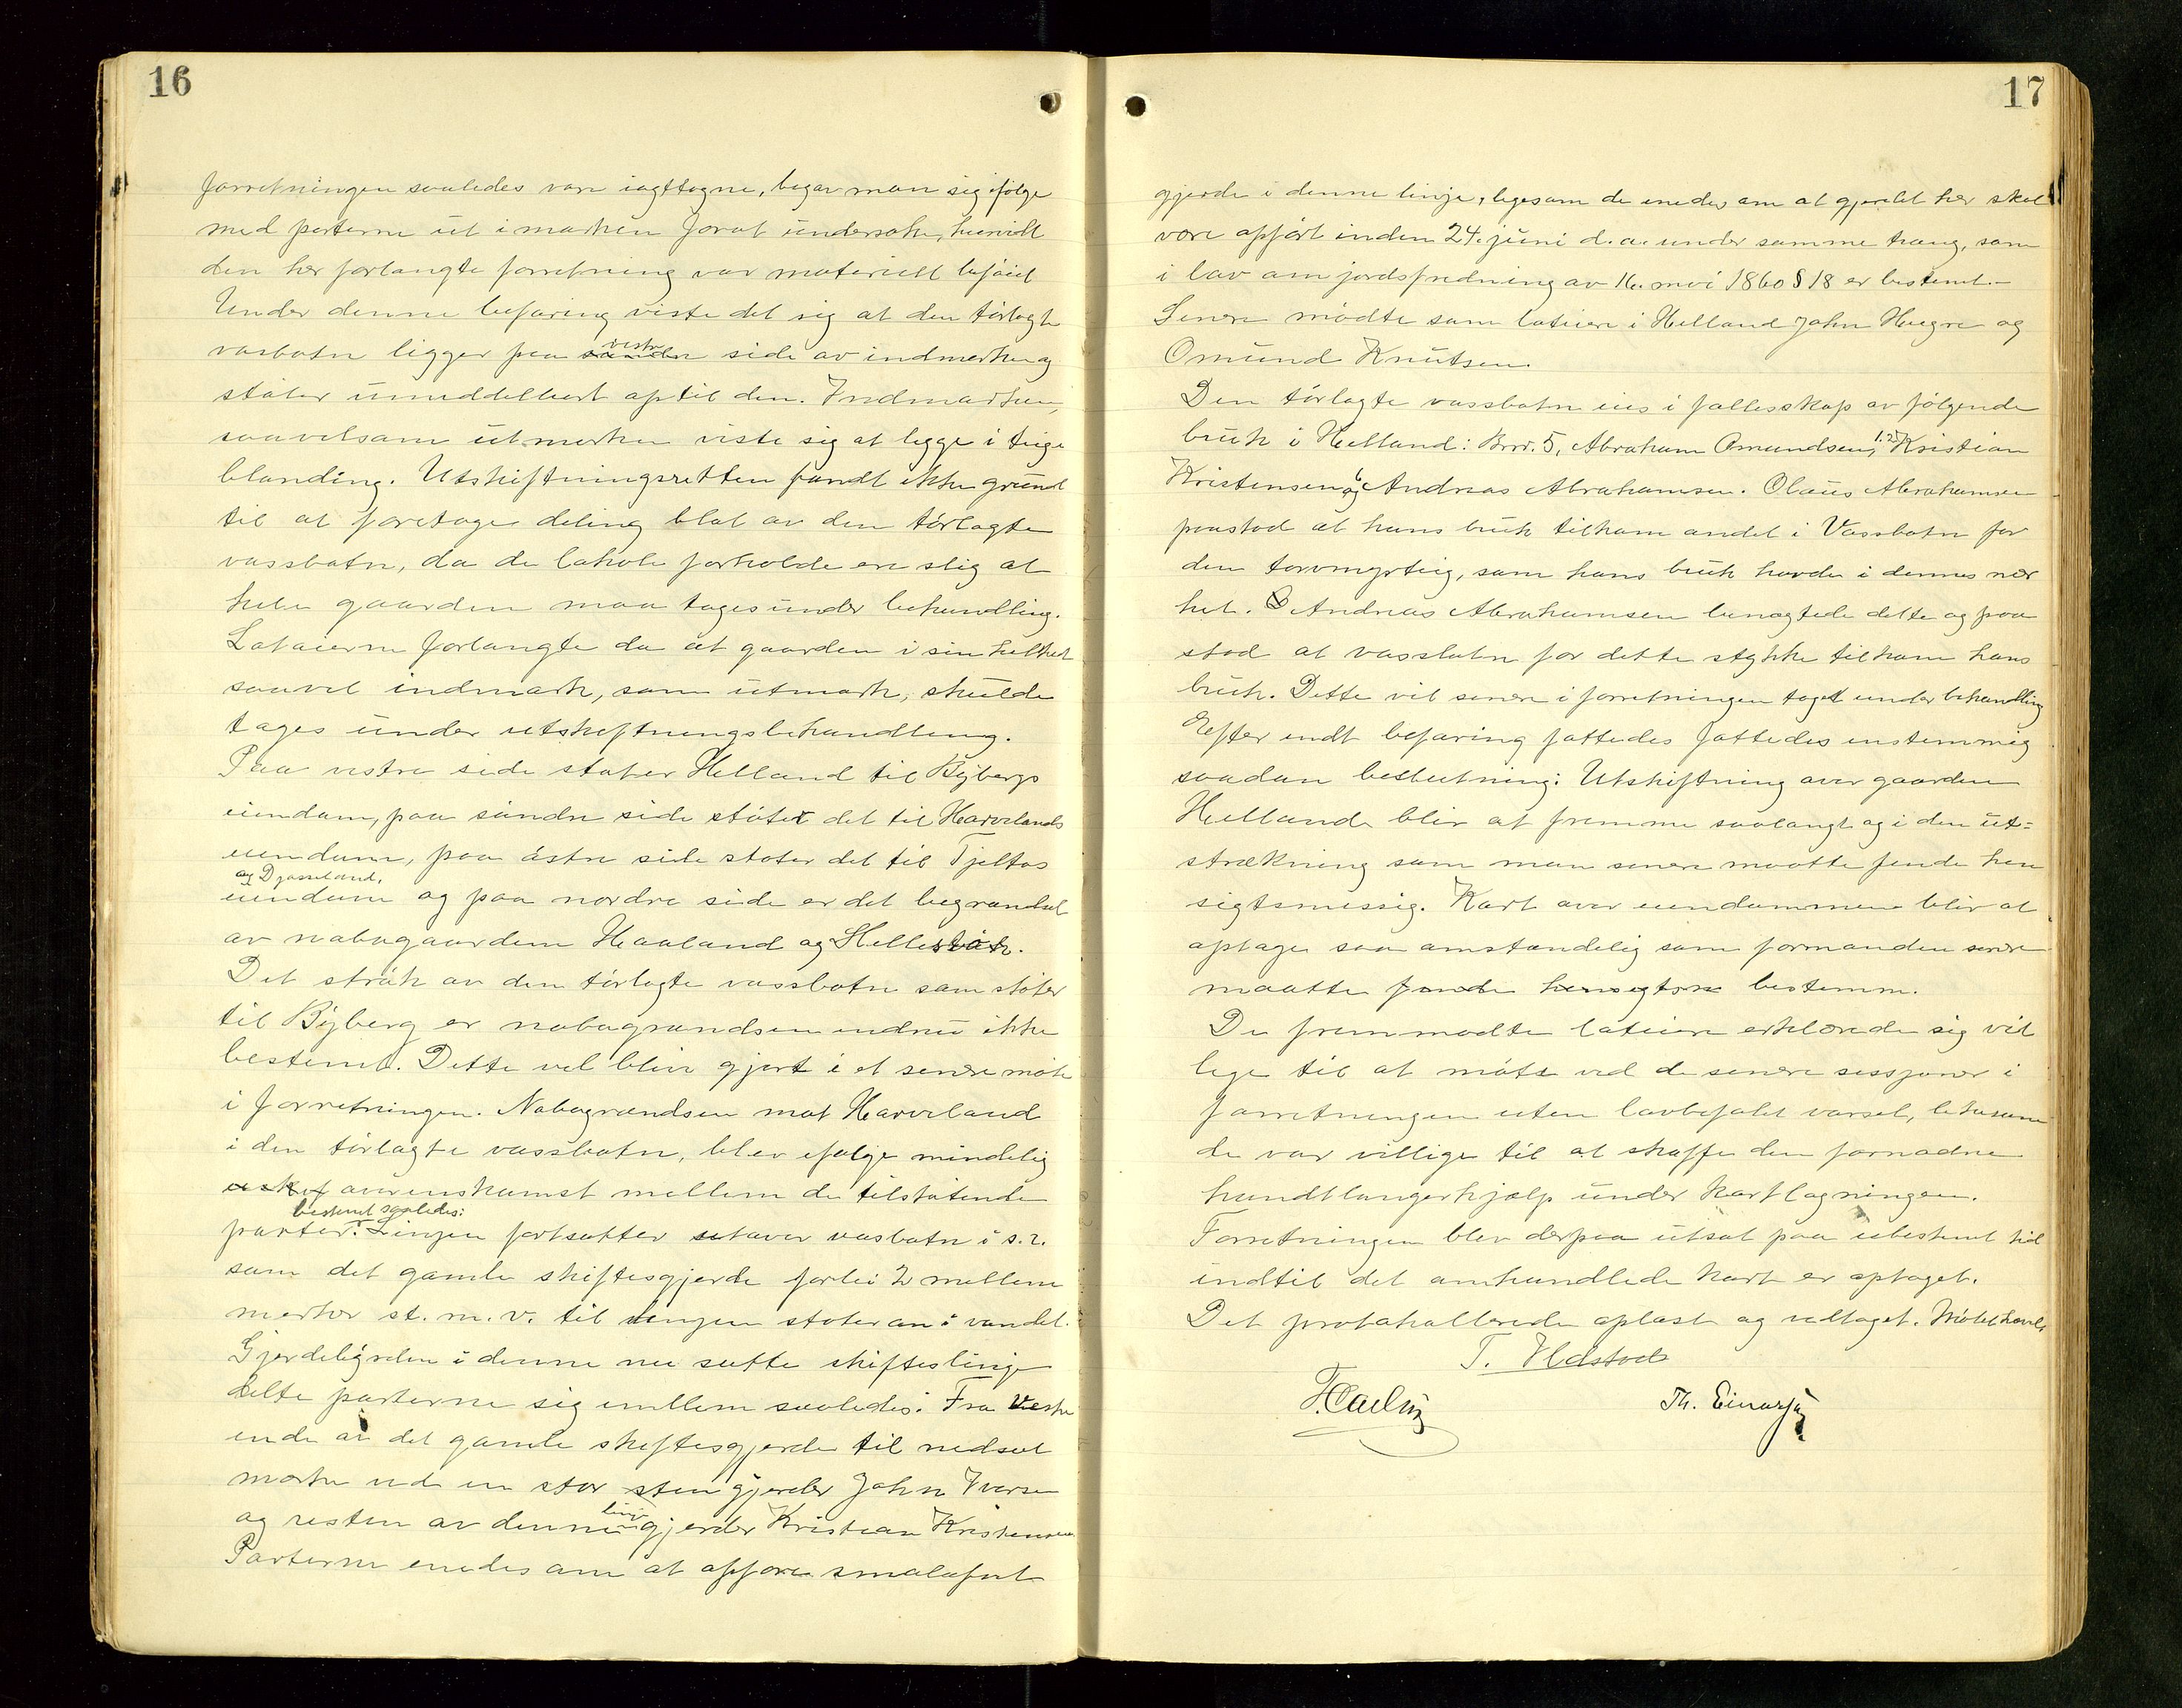 16
forretningen saaledes vare iagttagne, begav man sig ifølge
med parterne ut i marken forat undersøke, hvorvidt
den her forlangte forretning var materiell beføiet
Under denne befaring viste det sig at den tørlagte
vasbotn ligger paa søndre vestre side av indmarken og
støter umiddelbart op til den. Indmarken,
saavelsom utmarken viste sig at ligge i teige
blanding. Utskiftningsretten fandt ikke grund
til at foretage deling blot av den tørlagte
vassbotn, da de lokale forholde ere slig at
hele gaarden maa tages under behandling.
Loteierne forlangte da at gaarden i sin helhet
saavel indmark, som utmark, skulde
tages under utskiftningsbehandling.
Paa vestre side støter Helland til Bybergs
eiendom, paa søndre side støter det til Harvelands
eiendom, paa østre side støter det til Tjeltas
og Dysseland,
eiendom og paa nordre side er det begrændset
av nabogaardene Haaland og Hellestøk.
Det strøk av den tørlagte vassbotn som støter
til Byberg er nabogrændsen endnu ikke
bestemt. Dette vil blive gjort i et senere møte
i forretningen. Nabogrændsen mot Harveland
i den tørlagte vassbotn, blev ifølge mindelig
overenskomst mellem de tilstøtende
parter bestemt saaledes: Linjen fortsætter utover vasbotn i s. r.
som det gamle skiftesgjerde forbi 2 mellem
merker st. m. v. til linjen støter an i vandet.
Gjerdeligreden i denne nu satte skifteslinje
delte parterne sig imellem saaledes: Fra vestre
ende av det gamle skiftesgjerde til nedsat
merke ved en stor sten gjerder John Iversen
og resten av denne linje gjerder Kristian Kristensen
Parterne enedes om at opføre smalefrit
17
gjerde i denne linje, ligesom de enedes om at gjerdet her skal
være opført inden 24. juni d. a. under samme tvang, som
i lov om jordsfredning av 16. mai 1860 § 18 er bestemt.-
Senere mødte som loteiere i Helland John Haegre og
Omund Knutsen.
Den tørlagte vassbotn eies i fællesskap av følgende
bruk i Helland: Brnr. 5, Abraham Omundsen, 1.2 Kristian
Kristensen og 6 Andreas Abrahamsen. Olaus Abrahamsen
paastod at hans bruk tilkom andel i Vassbotn for
den torvmyrteig, som hans bruk havde i dennes nær
het. Andreas Abrahamsen benegtede dette og paa
stod at vassbotn for dette stykke tilkom hans
bruk. Dette vil senere i forretningen taget under behandling
Efter endt befaring fattedes fattedes enstemmig
saadan beslutning: Utskiftning over gaarden
Helland blir at fremme saalangt og i den ut=
strækning som man senere maatte finde hen
sigtsmessig. Kart over eiendommene blir at
optage saa omstændelig som formanden senere
maatte finde hensigtsm bestemm.
De fremmødte loteiere erklærede sig vil
lige til at møte ved de senere sessjoner i
forretningen uten lovbefalet varsel, likesom
de var villige til at skaffe den fornødne
handtlangerhjælp under kartlagningen.
Forretningen blev derpaa utsat paa ubestemt tid
indtil det omhandlede kart er optaget.
Det protokollerede oplæst og vedtaget. Møtet hævet
T. Ildstad
Th. Einarsen